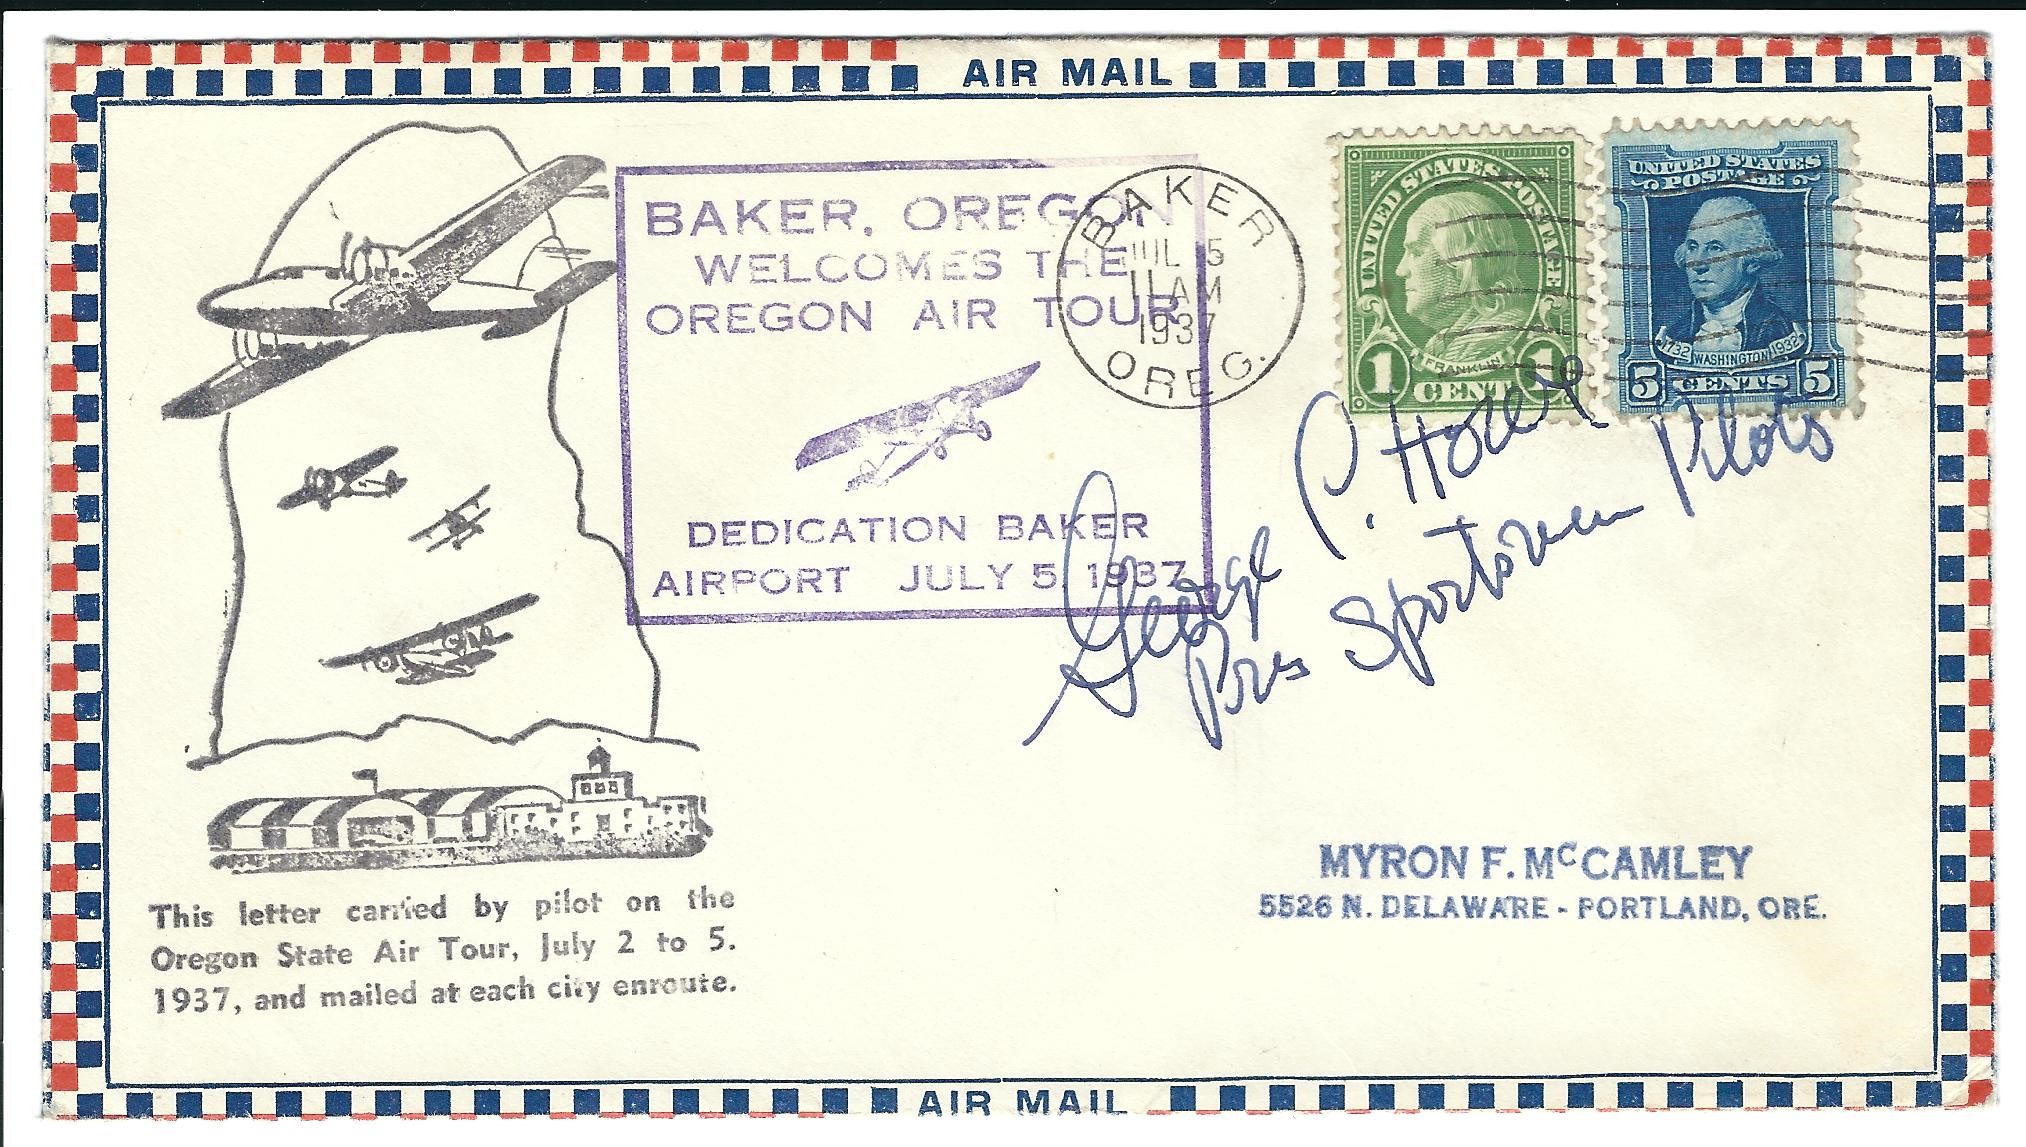 AIR MAIL
BAKER, OREGON
WELCOMES THE
OREGON AIR TOUR
DEDICATION BAKER
AIRPORT JULY 5, 1937
BAKER
JUL 5
11 AM
1937
OREG.
UNITED STATES POSTAGE
FRANKLIN
1 CENT 1
UNITED STATES
POSTAGE
1732 WASHINGTON 1932
5 CENTS 5
George P.
Pres Sportsmen Pilots
MYRON F. McCAMLEY
5526 N. DELAWARE - PORTLAND, ORE.
This letter carried by pilot on the
Oregon State Air Tour, July 2 to 5.
1937, and mailed at each city enroute.
AIR MAIL